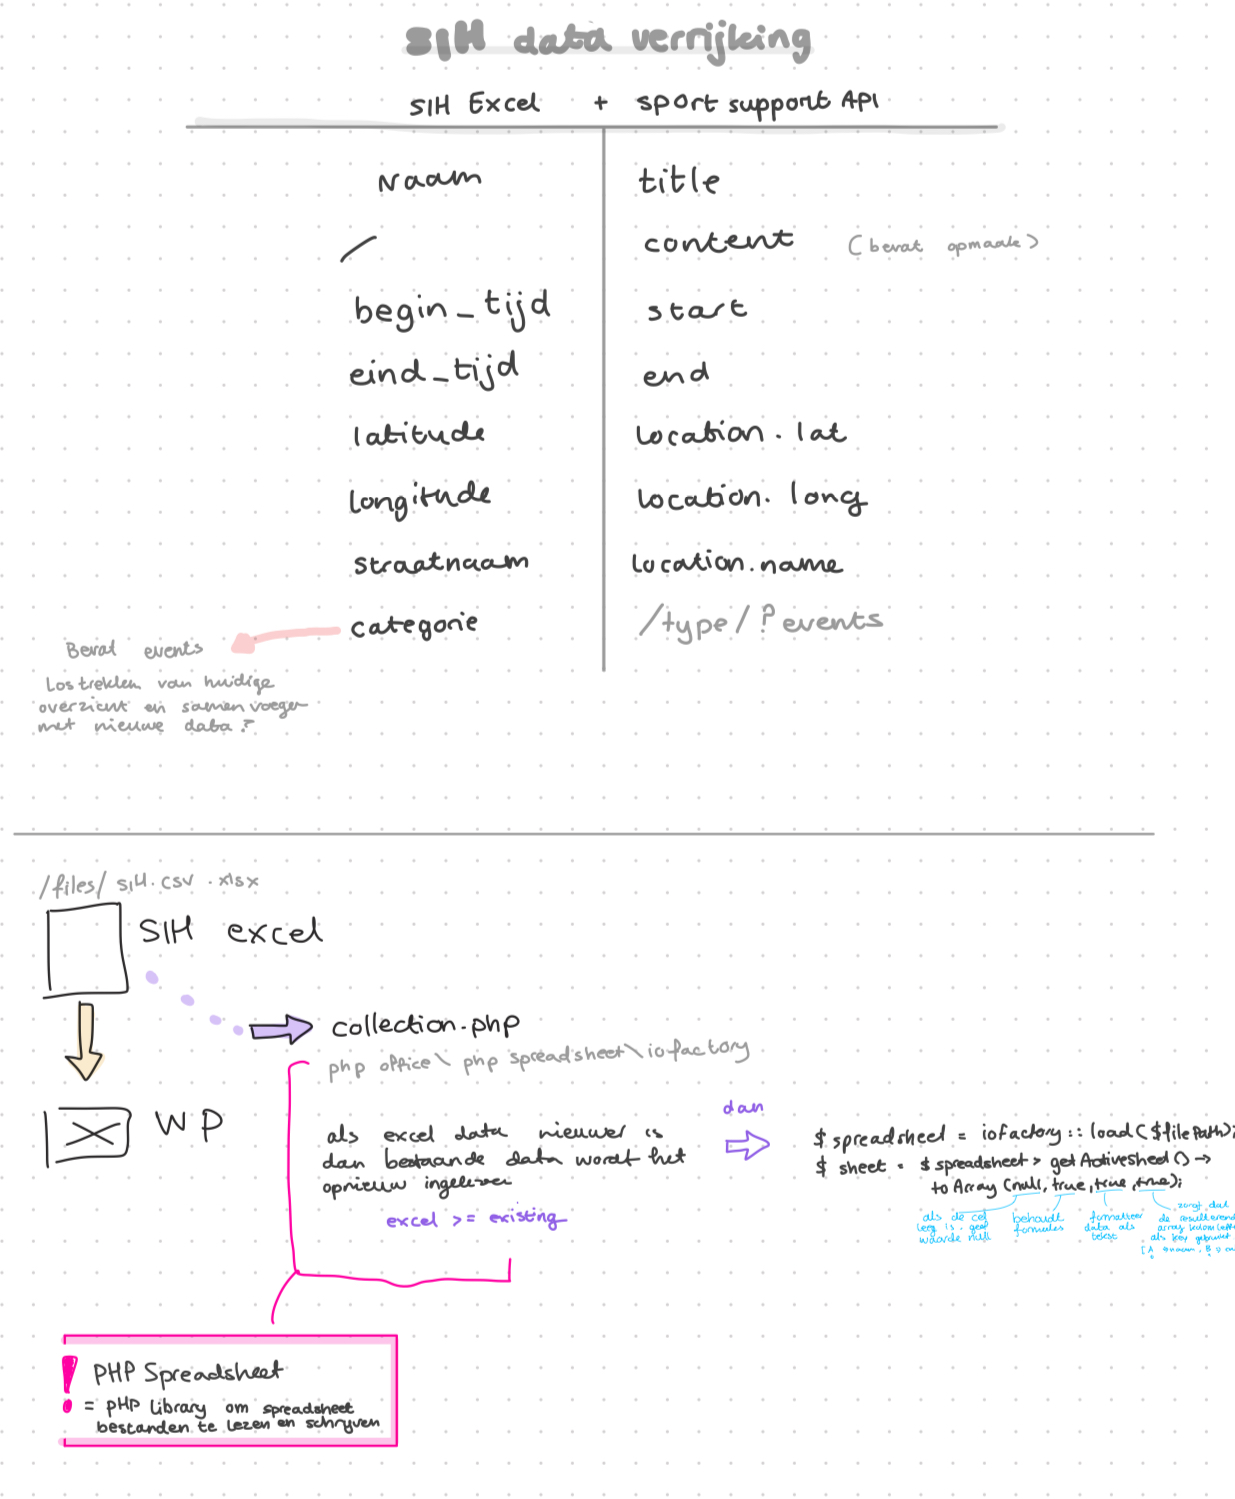 SIH data verrijking
SIH Excel + sport support API
Naam title
/ content (bevat opmaak)
begin_tijd start
eind_tijd end
latitude location.lat
longitude location.long
straatnaam location.name
categorie /type/?events
Bevat events
Lostrekken van huidige
overzicht en samenvoegen
met nieuwe data?
/files/ SIH.csv .xlsx
SIH excel
collection.php
php office\ php spreadsheet\iofactory
WP
als excel data nieuwer is
dan bestaande data wordt het
opnieuw ingelezen
excel >= existing
dan
$spreadsheet = iofactory::load($filePath);
$sheet = $spreadsheet> getActiveSheet() →
toArray(null, true, true, true);
als de cel
leeg is, geef
waarde null
behoudt
formules
formatteer
data als
tekst
zorgt dat
de resulterend
array kolom
als key gebruikt
PHP Spreadsheet
= PHP Library om spreadsheet
bestanden te lezen en schrijven